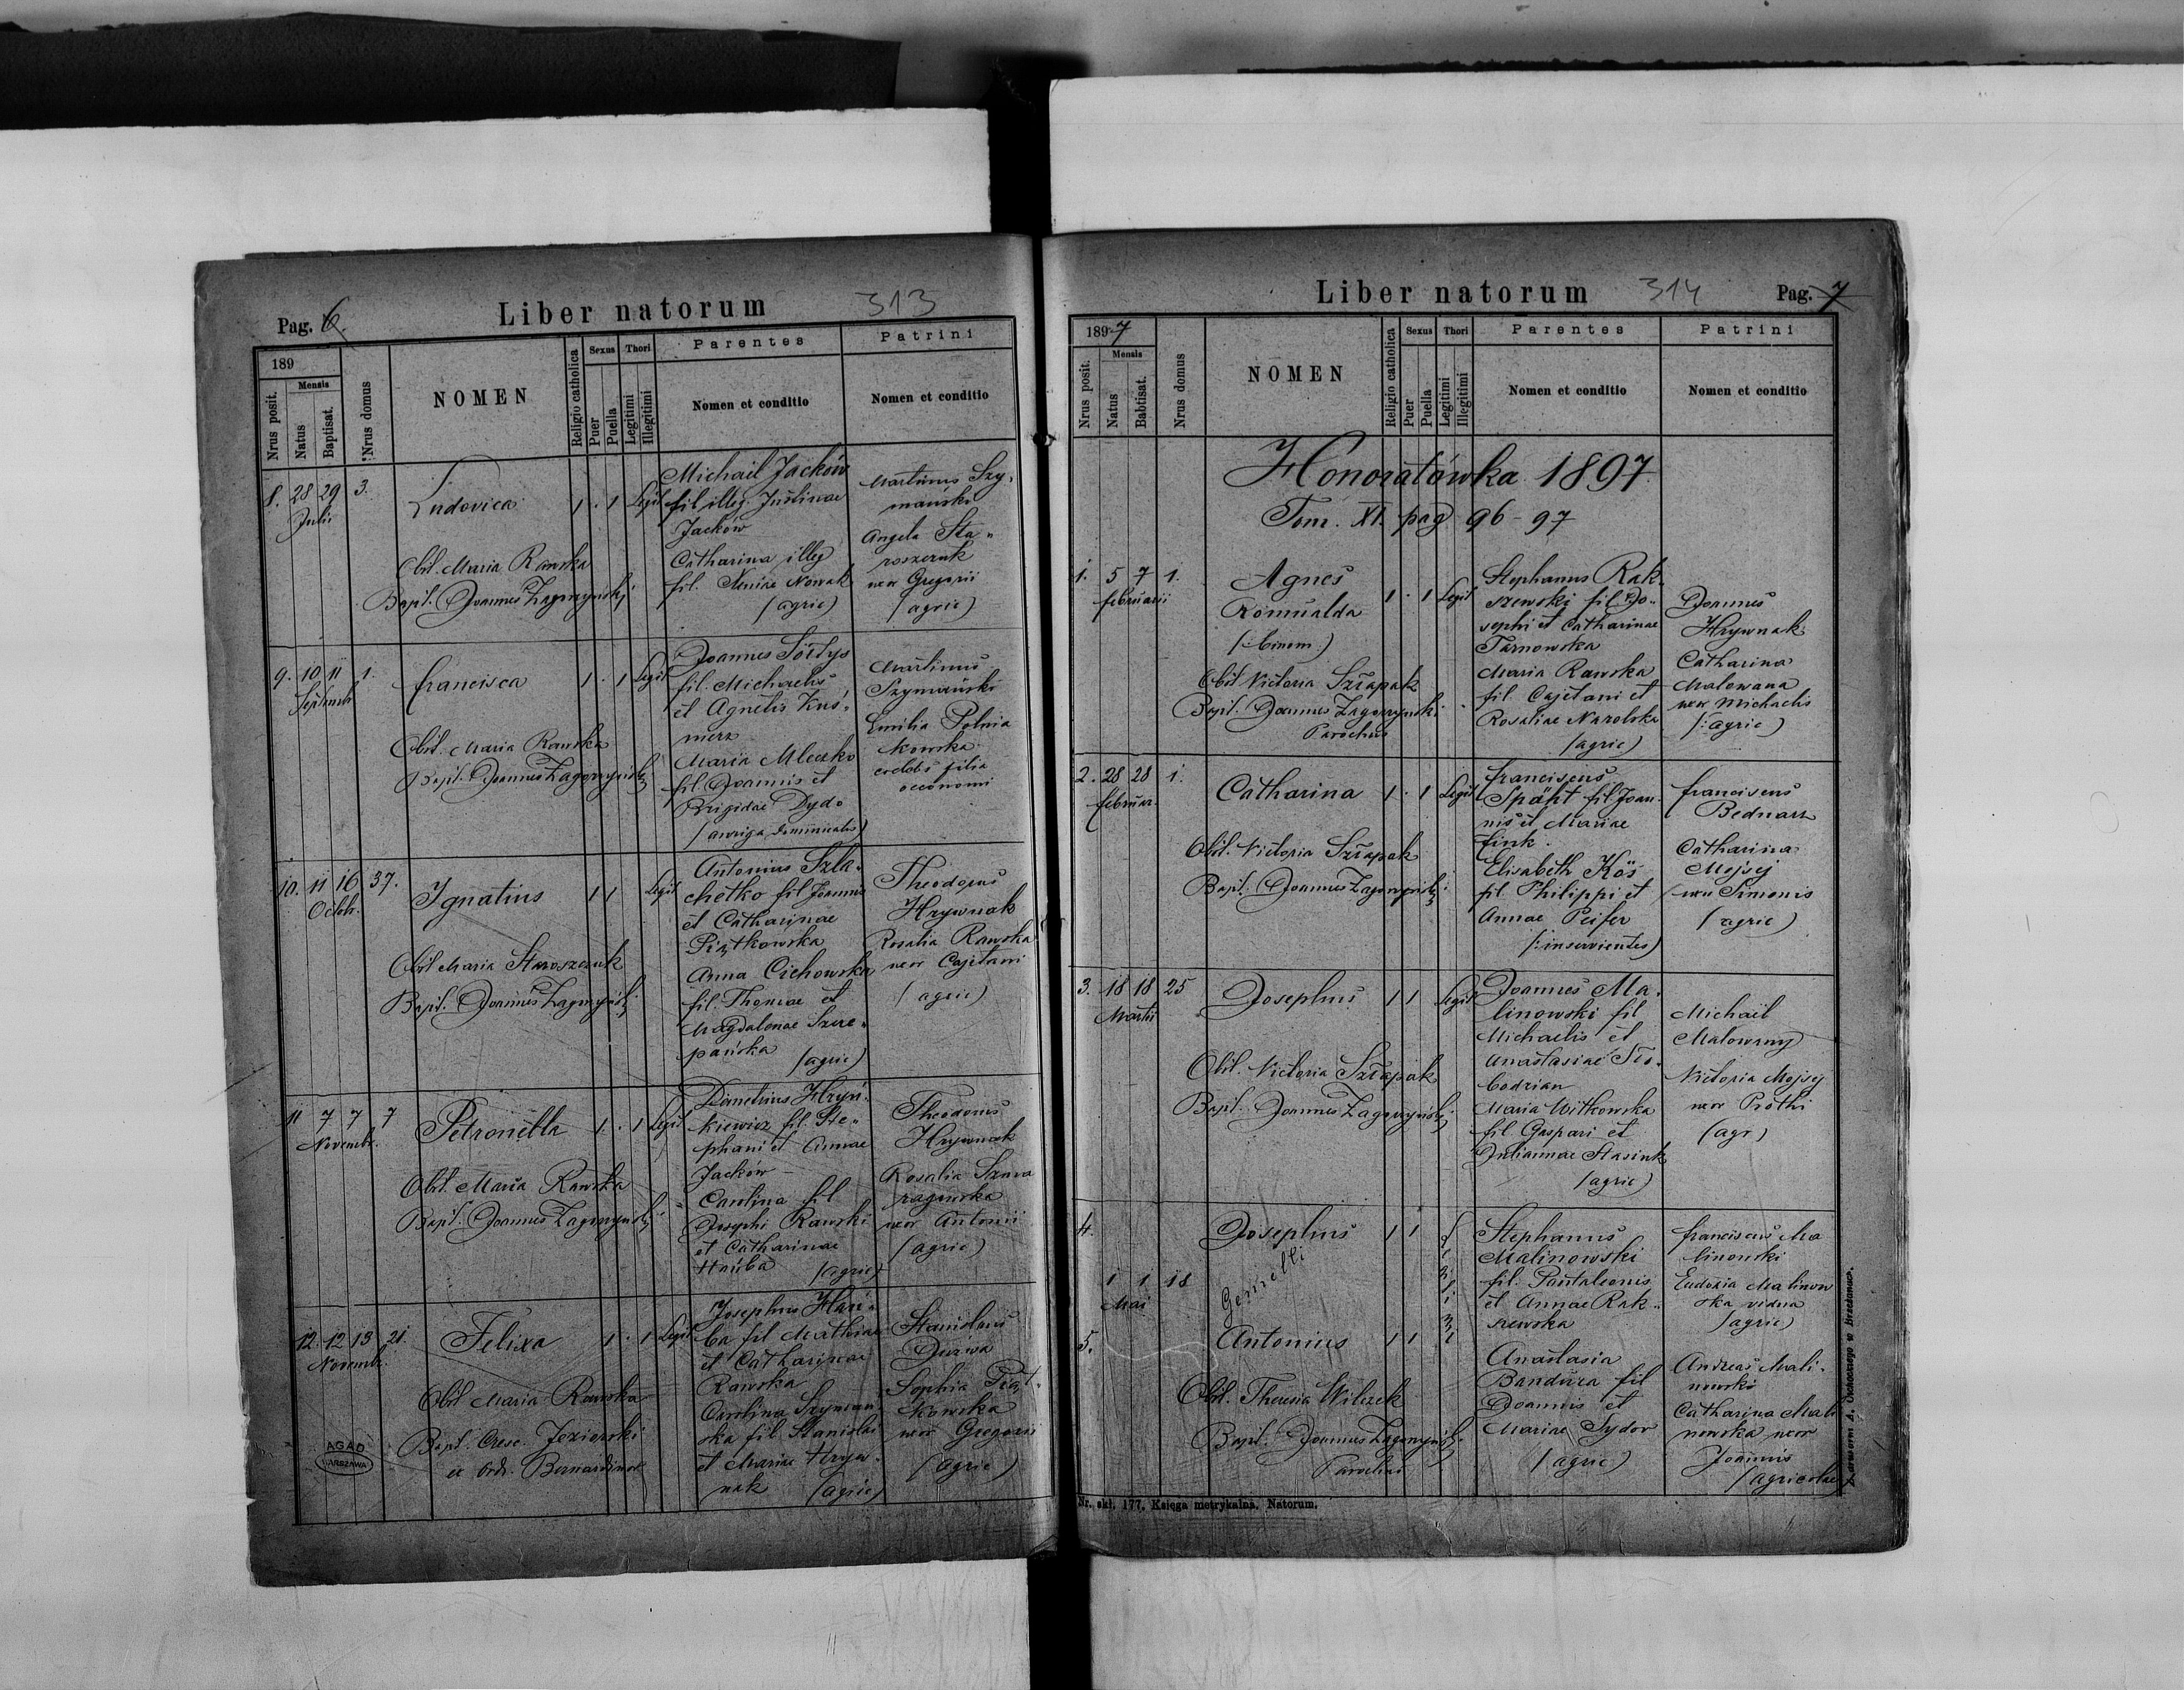 Pag. 6.
Liber natorum
313
189
Nrus posit.
Mensis
Natus
Baptisat.
Nrus domus
NOMEN
Religio catholica
Sexus
Puer
Puella
Thori
Legitimi
Illegitimi
Parentes
Nomen et conditio
Patrini
Nomen et conditio
8. 28 29 3.
Julii
Ludovica
1 . 1 Legit
Obst. Maria Rawska
Bapt. Joannes Zagorzyński
Michail Jacków
fil illeg. Justinae
Jacków
Catharina illeg
fil. Xeniae Nowak
(agric)
Martinus Szy-
mański
Angela Sta-
roszczuk
uxor Gregorii
(agric)
9. 10 11 1.
Septemb
Francisca
1 . 1 Legit
Obst. Maria Rawska
Bapt. Joannes Zagorzyński
Joannes Sołtys
fil. Michaelis
et Agnetis Kuś-
nierz
Maria Mleczko
fil. Joannis et
Brigidae Dydo
(auriga dominicalis)
Martinus
Szymański
Emilia Polnia
kowska
coelebs filia
oeconomi
10. 11 16 37.
Octob.
Ignatius
1 1 Legit
Obst Maria Staroszczuk
Bapt. Joannes Zagorzyński
Antonius Szla-
chetko fil Joannis
et Catharinae
Piątkowska
Anna Cichowska
fil. Thomae et
Magdalenae Szcze-
pańska (agric)
Theodorus
Hrywnak
Rosalia Rawska
uxor Cajetani
(agric)
11 7 7 7
Novembr.
Petronella
1. . 1 Legit
Obst. Maria Rawska
Bapt. Joannes Zagorzyński
Demetrius Hryń-
kiewicz fil. Ste-
phani et Annae
Jacków
Carolina fil
Josephi Rawski
et Catharinae
Hańba (agric)
Theodorus
Hrywnak
Rosalia Szara
uxor Antonii
(agric)
12. 12 13 21.
Novemb.
Felixa
1 . 1 Legit
Obst Maria Rawska
Bapt. Cresc. Jezierski
ex Ord. Bernardinor
Josephus Hań-
ba fil Mathiae
et Catharinae
Rawska
Carolina Szyman-
ska fil Stanislai
et Mariae Hryw-
nak (agric)
Stanislaus
Durwa
Sophia Piąt-
kowska
uxor Gregorii
(agric)
AGAD
WARSZAWA
Liber natorum
314
Pag. 7
1897
Nrus posit.
Mensis
Natus
Babtisat.
Nrus domus
NOMEN
Religio catholica
Sexus
Puer
Puella
Thori
Legitimi
Illegitimi
Parentes
Nomen et conditio
Patrini
Nomen et conditio
Honoratówka 1897.
Tom. XI. pag 96-97
1. 5 7 1.
februarii
Agnes
Romualda
(:binom.)
1 . 1 Legit
Obst Victoria Szłapak
Bapt. Joannes Zagorzyński
Parochus
Stephanus Rak-
szewski fil. Jo-
sephi et Catharinae
Tarnowska
Maria Rawska
fil. Cajetani et
Rosaliae Narolska
(agric)
Joannes
Hrywnak
Catharina
Malowana
uxor Michaelis
(:agric)
2. 28 28 1.
februar.
Catharina
1 . 1 Legit
Obst. Victoria Szłapak
Bapt. Joannes Zagorzyński
Franciscus
Späht fil Joan-
nis et Mariae
Fink.
Elisabeth Kös
fil. Philippi et
Annae Peifer
(:inservientes)
Franciscus
Bednarz
Catharina
Mojsej
uxor Simonis
(agric)
3. 18 18 25
Martii
Josephus
1 1 Legit
Obst. Victoria Szłapak
Bapt. Joannes Zagorzyński
Joannes Ma-
linowski fil
Michaelis et
Anastasiae Sło-
bodzian
Maria Witkowska
fil Gaspari et
Juliannae Stasiuk
(agric)
Michail
Malowany
Victoria Mojsej
uxor Prothi
(agr)
4.
Josephus
1 1
Gemelli
1 1 18
Mai
5.
Antonius
1 1
Legitimi
Obst. Theresia Wilczek
Bapt. Joannes Zagorzyński
Parochus
Stephanus
Malinowski
fil. Pantaleonis
et Annae Rak-
szewska
Anastasia
Bandura fil
Joannis et
Mariae Sydor
(agric)
Franciscus Ma
linowski
Eudoxia Malinow
ska vidua
(agric)
Andreas Mali-
nowski
Catharina Mali
nowska uxor
Joannis
(agricolae)
Nr. skł. 177. Księga metrykalna. Natorum.